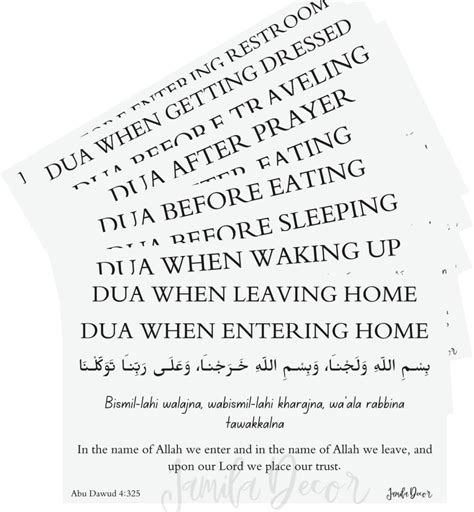 BEFORE ENTERING RESTROOM
DUA WHEN GETTING DRESSED
DUA BEFORE TRAVELING
DUA AFTER PRAYER
AFTER EATING
DUA BEFORE EATING
DUA BEFORE SLEEPING
DUA WHEN WAKING UP
DUA WHEN LEAVING HOME
DUA WHEN ENTERING HOME
بِسْمِ اللَّهِ وَلَجْنَا، وَبِسْمِ اللَّهِ خَرَجْنَا، وَعَلَى رَبِّنَا تَوَكَّلْنَا
Bismil-lahi walajna, wabismil-lahi kharajna, wa'ala rabbina
tawakkalna
In the name of Allah we enter and in the name of Allah we leave, and
upon our Lord we place our trust.
Jamila Decor
Abu Dawud 4:325
Jamila Decor